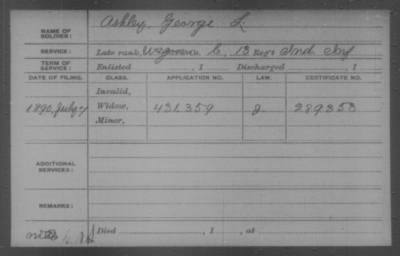 NAME OF SOLDIER: Ashley, George L.
SERVICE: Late rank, Wagoner C, 13 Reg't Ind Inf
TERM OF SERVICE: Enlisted , 1 Discharged , 1
DATE OF FILING. CLASS. APPLICATION NO. LAW. CERTIFICATE NO.
Invalid,
1890, July 7 Widow, 431359 289353
Minor,
ADDITIONAL SERVICES:
REMARKS:
Died , 1 , at